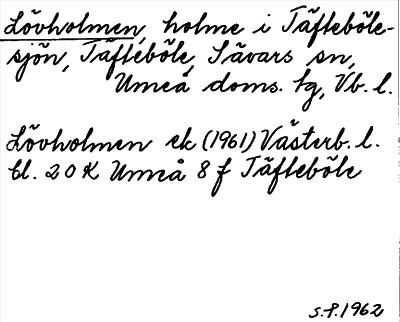 Lövholmen, holme i Täfteböle-
sjön, Täfteböle, Sävars sn,
Umeå doms. tg, Vb. l.
Lövholmen ek (1961) Västerb. l.
bl. 20 K Umeå 8 f Täfteböle
S.P. 1962